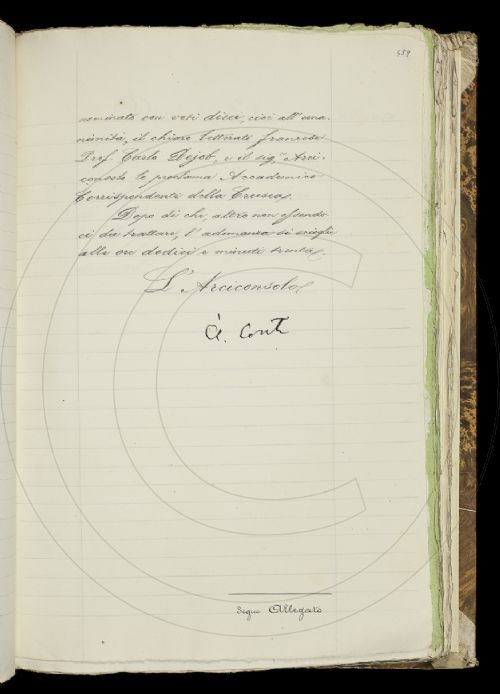 559
nominato con voti dieci, cioè all'una-
nimità, il chiaro letterato francese
Prof. Carlo Dejob, e il sig.r Arci-
consolo lo proclama Accademico
Corrispondente della Crusca.
Dopo di che, altro non essendo-
ci da trattare, l'adunanza si scioglie
alle ore dodici e minuti trenta.
L'Arciconsolo
A. Conti
Segue Allegato